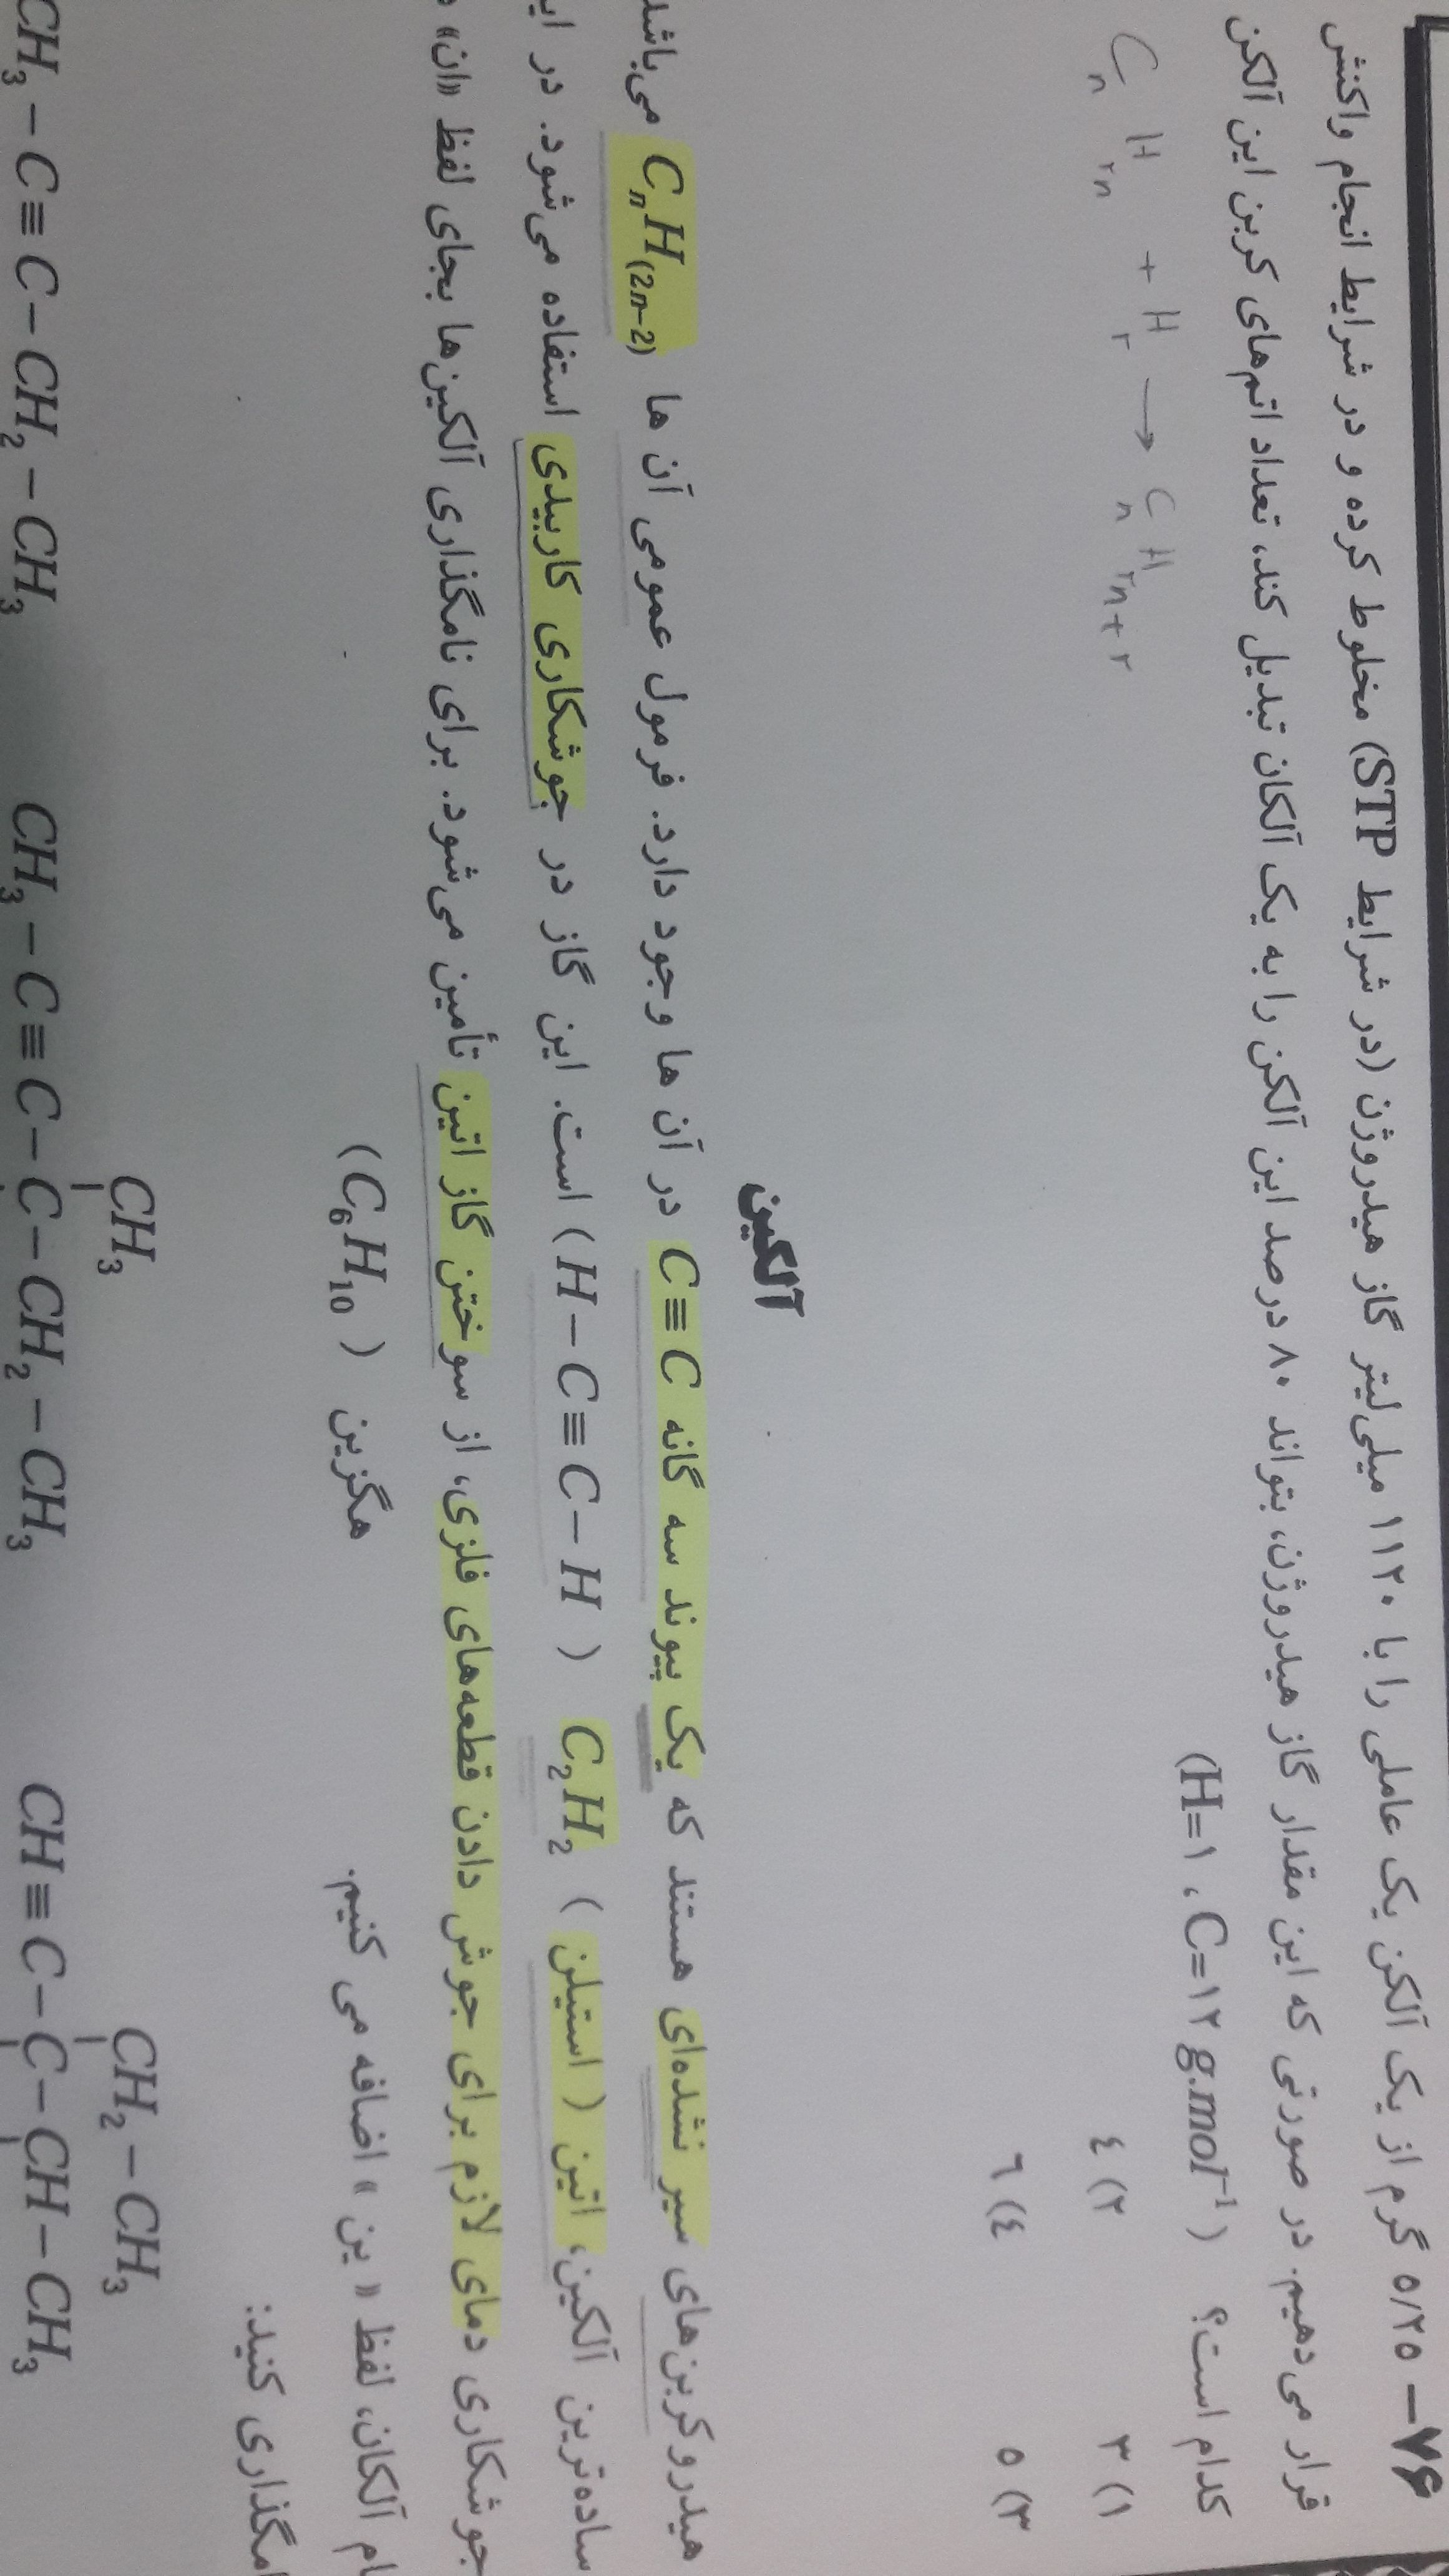 ۷۶- ۵/۲۵ گرم از یک آلکن یک عاملی را با ۱۱۲۰ میلی‌لیتر گاز هیدروژن (در شرایط STP) مخلوط کرده و در شرایط انجام واکنش
قرار می‌دهیم. در صورتی که این مقدار گاز هیدروژن، بتواند ۸۰ درصد این آلکن را به یک آلکان تبدیل کند، تعداد اتم‌های کربن این آلکن
کدام است؟ (H=۱ ، C=۱۲ g.mol⁻¹)
۱) ۳ ۲) ۴
۳) ۵ ۴) ۶
CₙH₂ₙ + H₂ → CₙH₂ₙ₊₂
آلکین
هیدروکربن‌های سیر نشده‌ای هستند که یک پیوند سه گانه C≡C در آن ها وجود دارد. فرمول عمومی آن ها CₙH₍₂ₙ₋₂₎ می‌باشد
ساده‌ترین آلکین، اتین ( استیلن ) C₂H₂ ( H–C≡C–H ) است. این گاز در جوشکاری کاربیدی استفاده می‌شود. در
جوشکاری دمای لازم برای جوش دادن قطعه‌های فلزی، از سوختن گاز اتین تأمین می‌شود. برای نامگذاری آلکین‌ها بجای لفظ «ان»
آلکان، لفظ « ین » اضافه می کنیم. هگزین ( C₆H₁₀ )
کنید:
CH₃ CH₂–CH₃
CH₃–C≡C–CH₂–CH₃ CH₃–C≡C–C–CH₂–CH₃ CH≡C–C–CH–CH₃